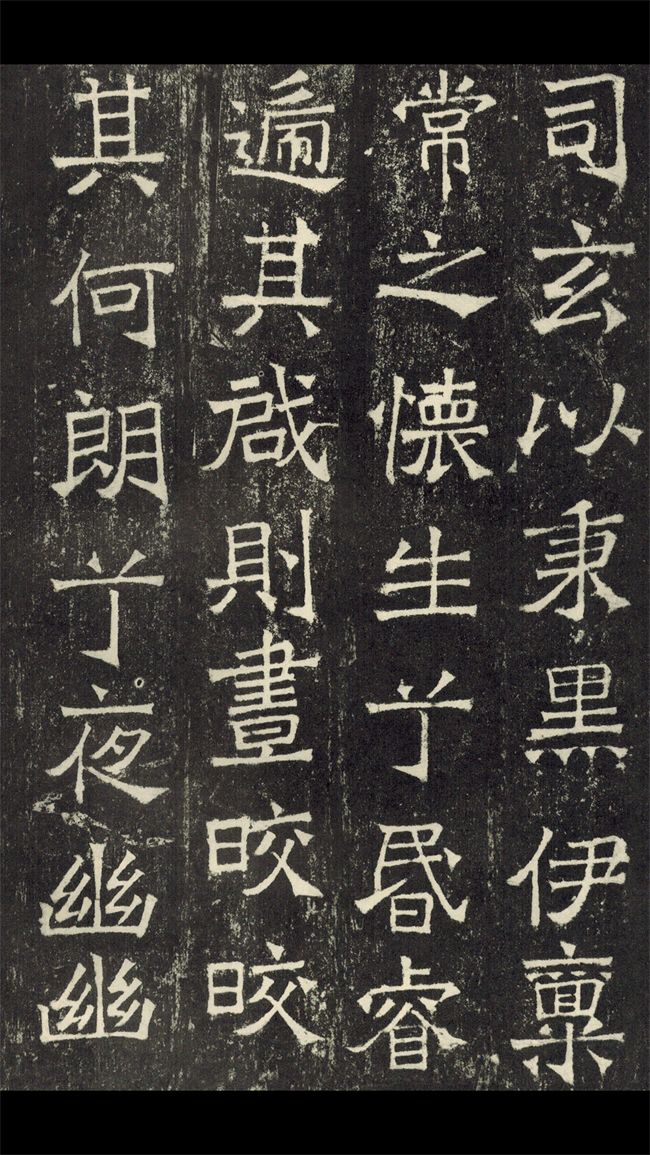 司玄以秉黒伊稟
常之懐生兮昬睿
遍其啟則晝晈晈
其何朗兮夜幽幽